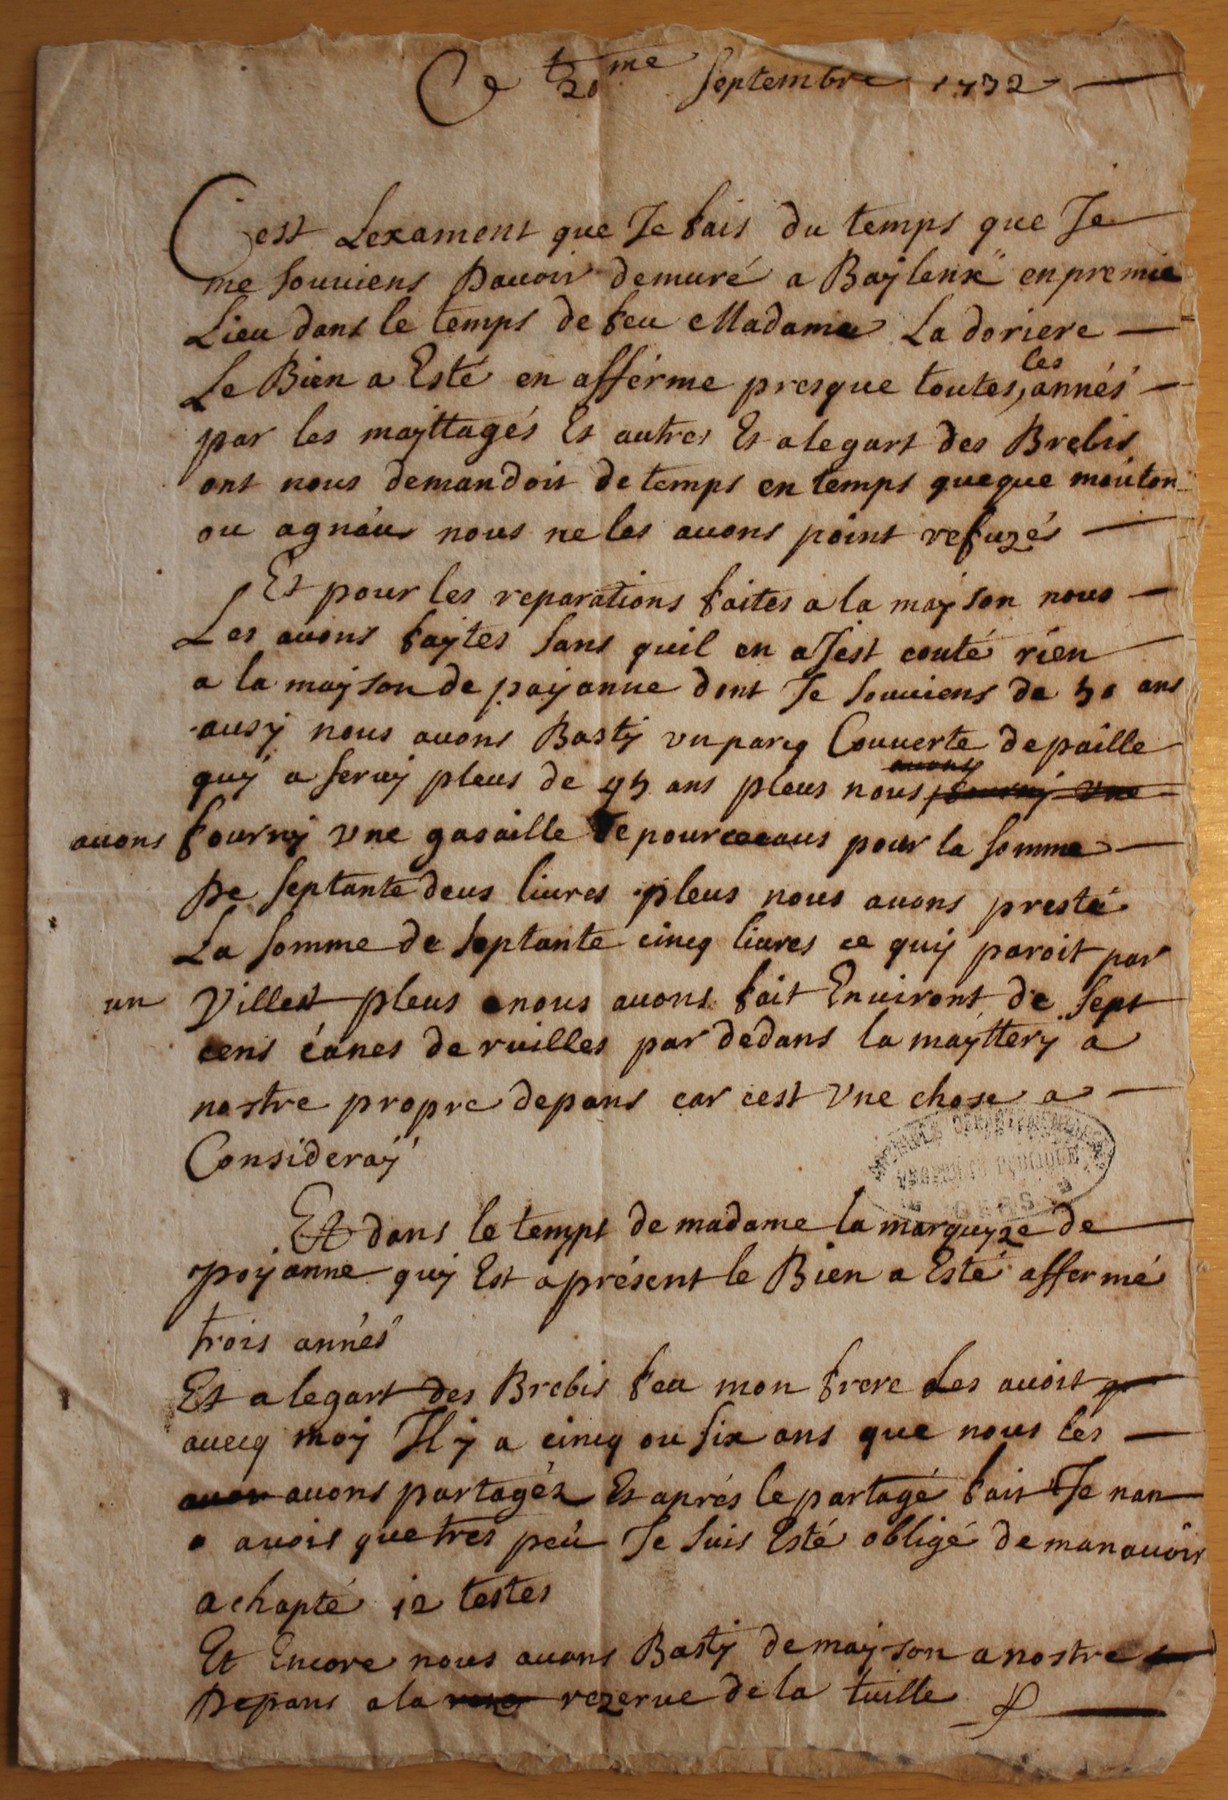 Ce 20me Septembre 1732
Cest Lexament que Je fais du temps que Je
me souuiens Dauoir demuré a Baylenx en premie
Lieu dans le temps de feu Madame La doriere
Le Bien a Esté en afférme presque toutes, les annés
par les mayttagés Et autres Et alegart des Brebis
ont nous demandoit de temps en temps queque mouton
ou agnáus nous ne les auons point refuzés
Et pour les reparations faites a la mayson nous
Les auons faytes sans quil en aJest couté rien
a la mayson de poyanne dont Je souuiens de 50 ans
ausy nous auons Basty vn parq Couuerte de paille
quy a seruy pleus de 45 ans pleus nous auons fourny vne
auons fourny vne gasaille de pourceaus pour la somme
De septante deus liures pleus nous auons presté
La somme de septante cinq liures ce quy paroit par
un Villest pleus nous auons fait Enuiront de sept
cens canes de ruilles par dedans la mayttery a
nostre propre depans car cest vne chose a
Consideray
ARCHIVES DÉPARTEMENTALES
GERS
Et dans le temps de madame la marquyze de
poyanne quy Est aprésent le Bien a Esté affermé
trois annés
Et alegart des Brebis feu mon frere Les auoit
auecq moy Il y a cinq ou six ans que nous les
auons partagés Et aprés le partagé fait Je nan
auois que tres peú Je suis Esté obligé de man auoir
achapté 12 testes
Et Encore nous auons Basty de mayson a nostre
Depans a la rezerue de la tuille